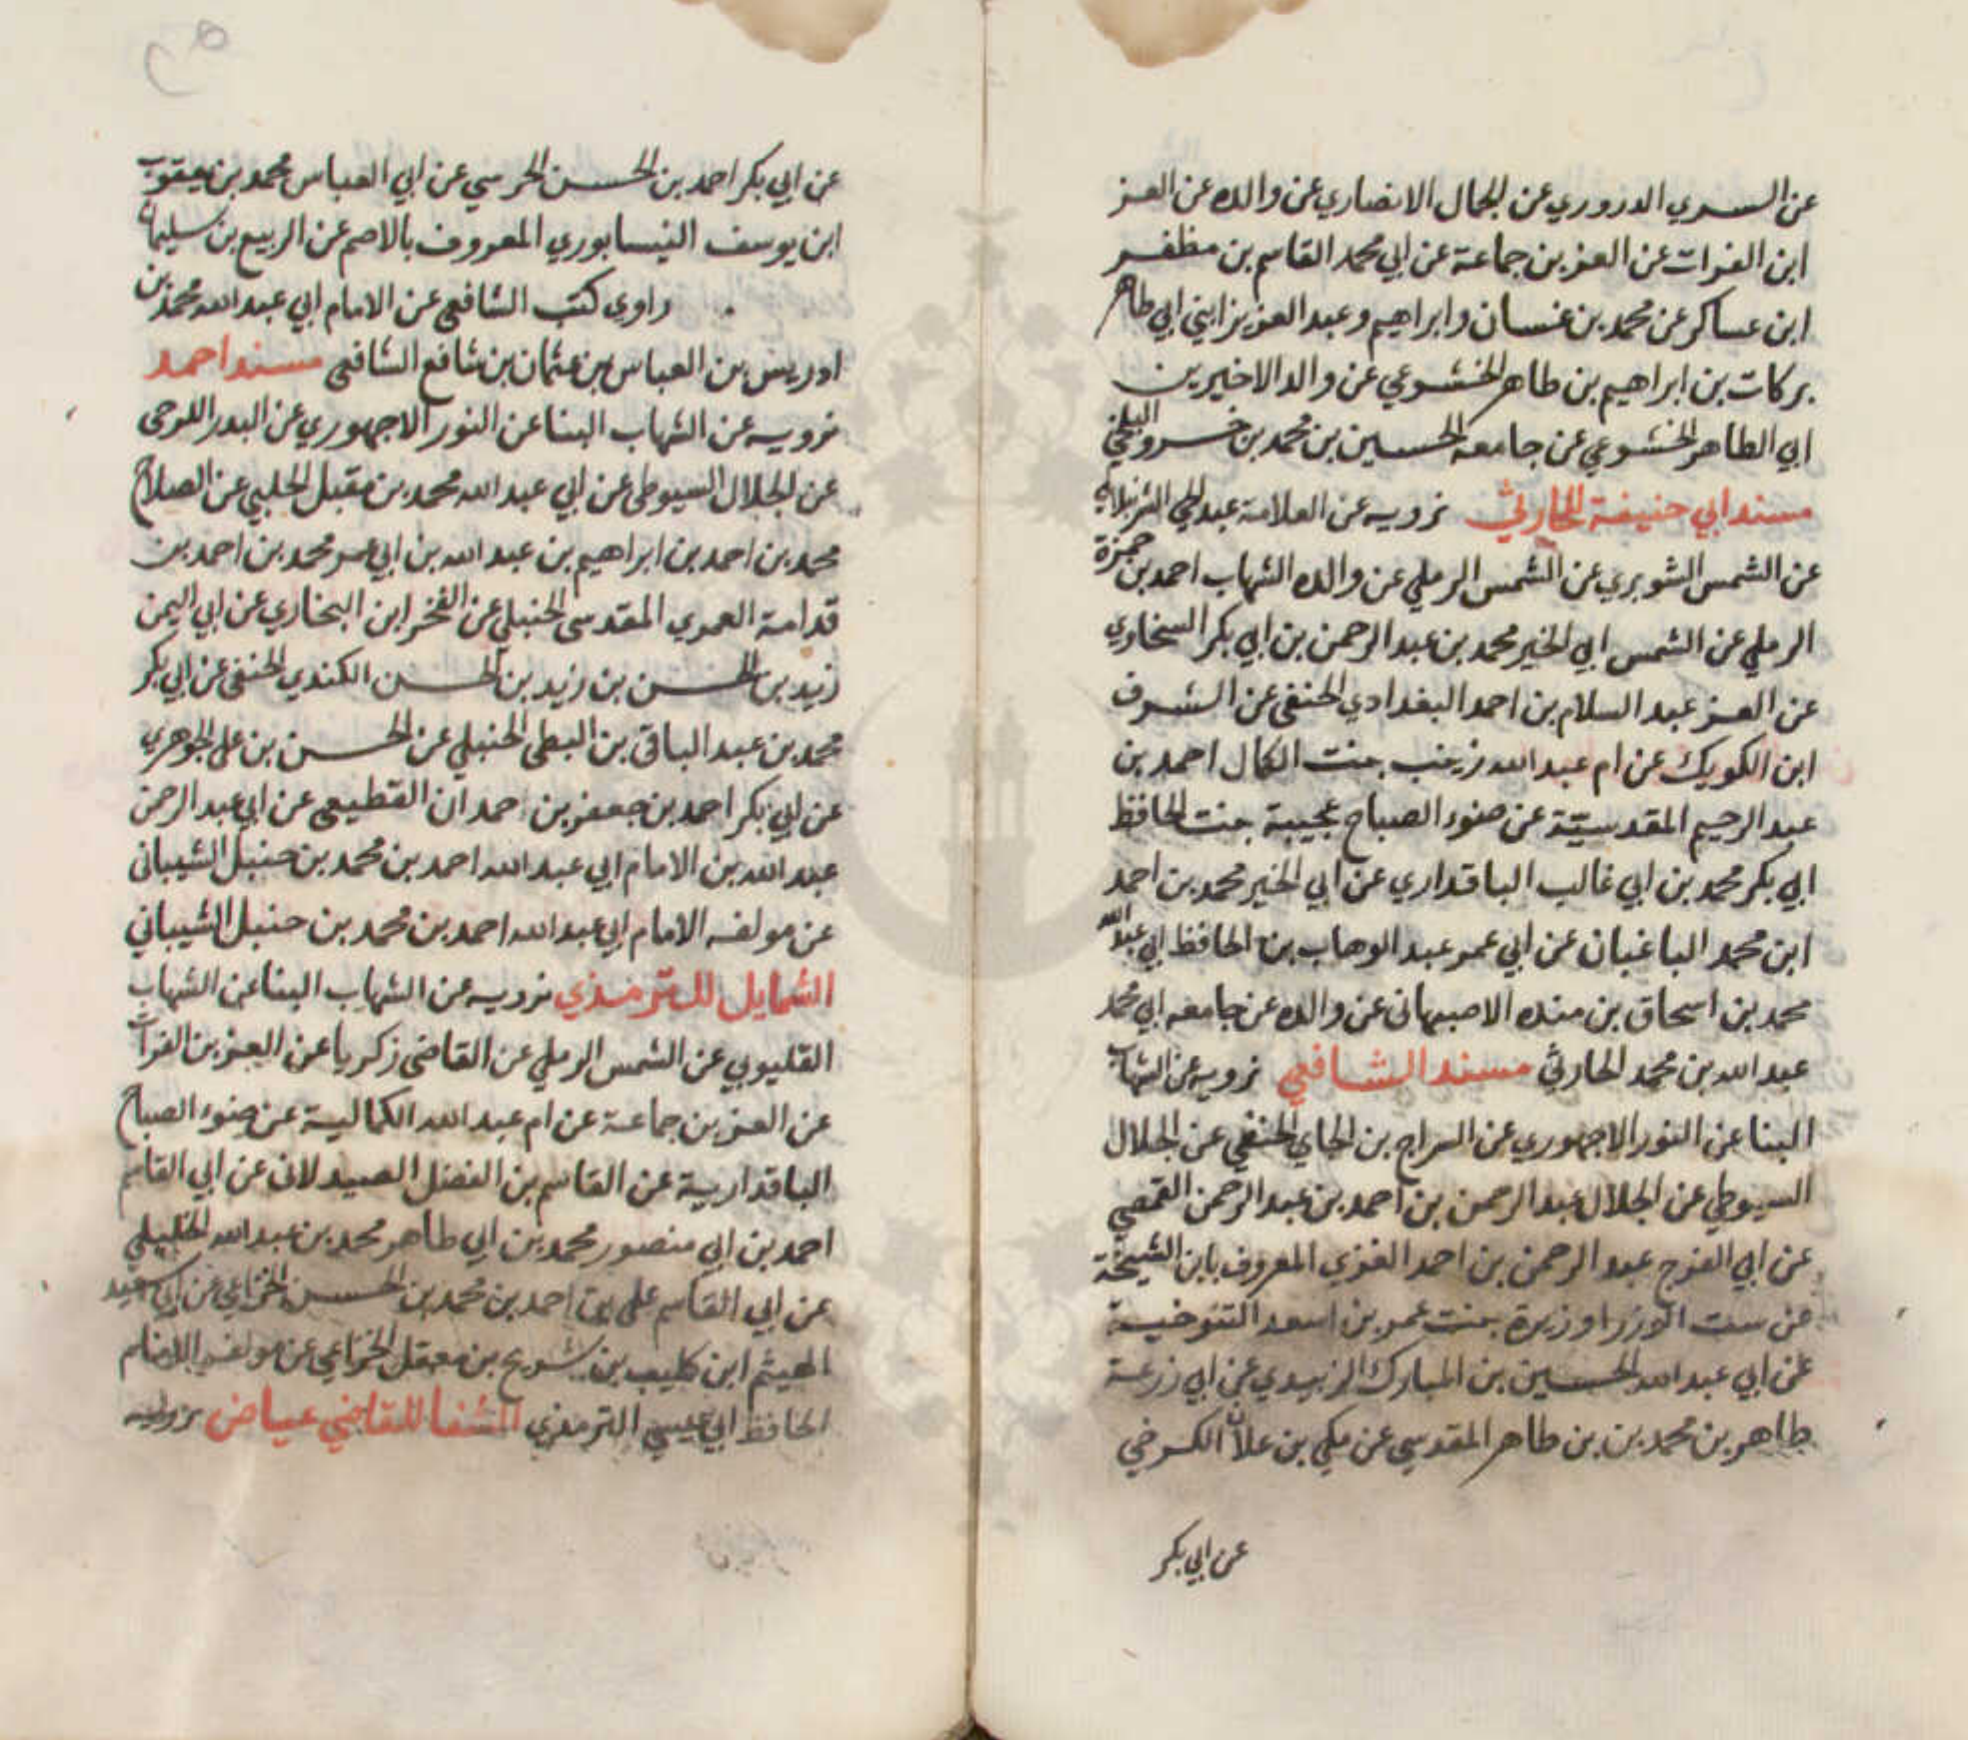 عن السري الدروري عن الجمال الانصاري عن والده عن العز
ابن الفرات عن العز بن جماعة عن ابي محمد القاسم بن مظفر
ابن عساكر عن محمد بن غسان وابراهيم وعبد العزيز ابني ابي طاهر
بركات بن ابراهيم بن طاهر الخشوعي عن والد الاخيرين
ابي الطاهر الخشوعي عن جامعه الحسين بن محمد بن خسرو البلخي
مسند ابي حنيفة للحارثي نرويه عن العلامة عبد الحي الشرنبلالي
عن الشمس الشوبري عن الشمس الرملي عن والده الشهاب احمد بن حمزة
الرملي عن الشمس ابي الخير محمد بن عبد الرحمن بن ابي بكر السخاوي
عن العز عبد السلام بن احمد البغدادي الحنفي عن الشرف
ابن الكويك عن ام عبد الله زينب بنت الكمال احمد بن
عبد الرحيم المقدسيّة عن ضوء الصباح عجيبة بنت الحافظ
ابي بكر محمد بن ابي غالب الباقداري عن ابي الخير محمد بن احمد
ابن محمد الباغبان عن ابي عمر عبد الوهاب بن الحافظ ابي عبد الله
محمد بن اسحاق بن منده الاصبهانى عن والده عن جامعه ابي محمد
عبد الله بن محمد الحارثي مسند الشافعي نرويه عن الشهاب
البنا عن النور الاجهوري عن السراج بن الجاي الحنفي عن الجلال
السيوطي عن الجلال عبد الرحمن بن احمد بن عبد الرحمن القمصي
عن ابي الفرج عبد الرحمن بن احمد الغزي المعروف بابن الشيخة
عن ست الوزرا وزيرة بنت عمر بن اسعد التنوخية
عن ابي عبد الله الحسين بن المبارك الزبيدي عن ابي زرعة
طاهر بن محمد بن بن طاهر المقدسي عن مكي بن علان الكرخي
عن ابي بكر
عن ابي بكر احمد بن الحسن الحرسي عن ابي العباس محمد بن يعقوب
ابن يوسف النيسابوري المعروف بالاصم عن الربيع بن سليمان
راوى كتب الشافعي عن الامام ابي عبد الله محمد بن
ادريس بن العباس بن عثمان بن شافع الشافعي مسند احمد
نرويه عن الشهاب البنا عن النور الاجهوري عن البدر الكرخى
عن الجلال السيوطى عن ابي عبد الله محمد بن مقبل الحلبي عن الصلاح
محمد بن احمد بن ابراهيم بن عبد الله بن ابي عمر محمد بن احمد بن
قدامة العمري المقدسى الحنبلي عن الفخر ابن البخاري عن ابي اليمن
زيد بن الحسن بن زيد بن الحسن الكندي الحنفى عن ابي بكر
محمد بن عبد الباقى بن البطى الحنبلي عن الحسن بن علي الجوهري
عن ابي بكر احمد بن جعفر بن احمدان القطيعي عن ابي عبد الرحمن
عبد الله بن الامام ابي عبد الله احمد بن محمد بن حنبل الشيبانى
عن مولفه الامام ابي عبد الله احمد بن محمد بن حنبل الشيباني
الشمايل للترمذي نرويه عن الشهاب البنا عن الشهاب
القليوبي عن الشمس الرملي عن القاضى زكريا عن العز بن الفرات
عن العز بن جماعة عن ام عبد الله الكمالية عن ضوء الصباح
الباقدارية عن القاسم بن الفضل الصيدلانى عن ابي القاسم
احمد بن ابى منصور محمد بن ابي طاهر محمد بن عبد الله الخليلي
عن ابي القاسم علي بن احمد بن محمد بن الحسن الخزاعي عن ابي سعيد
الهيثم ابن كليب بن شريح بن معقل الخزاعي عن مولفه الامام
الحافظ ابي عيسي الترمذي الشفا للقاضي عياض نرويه